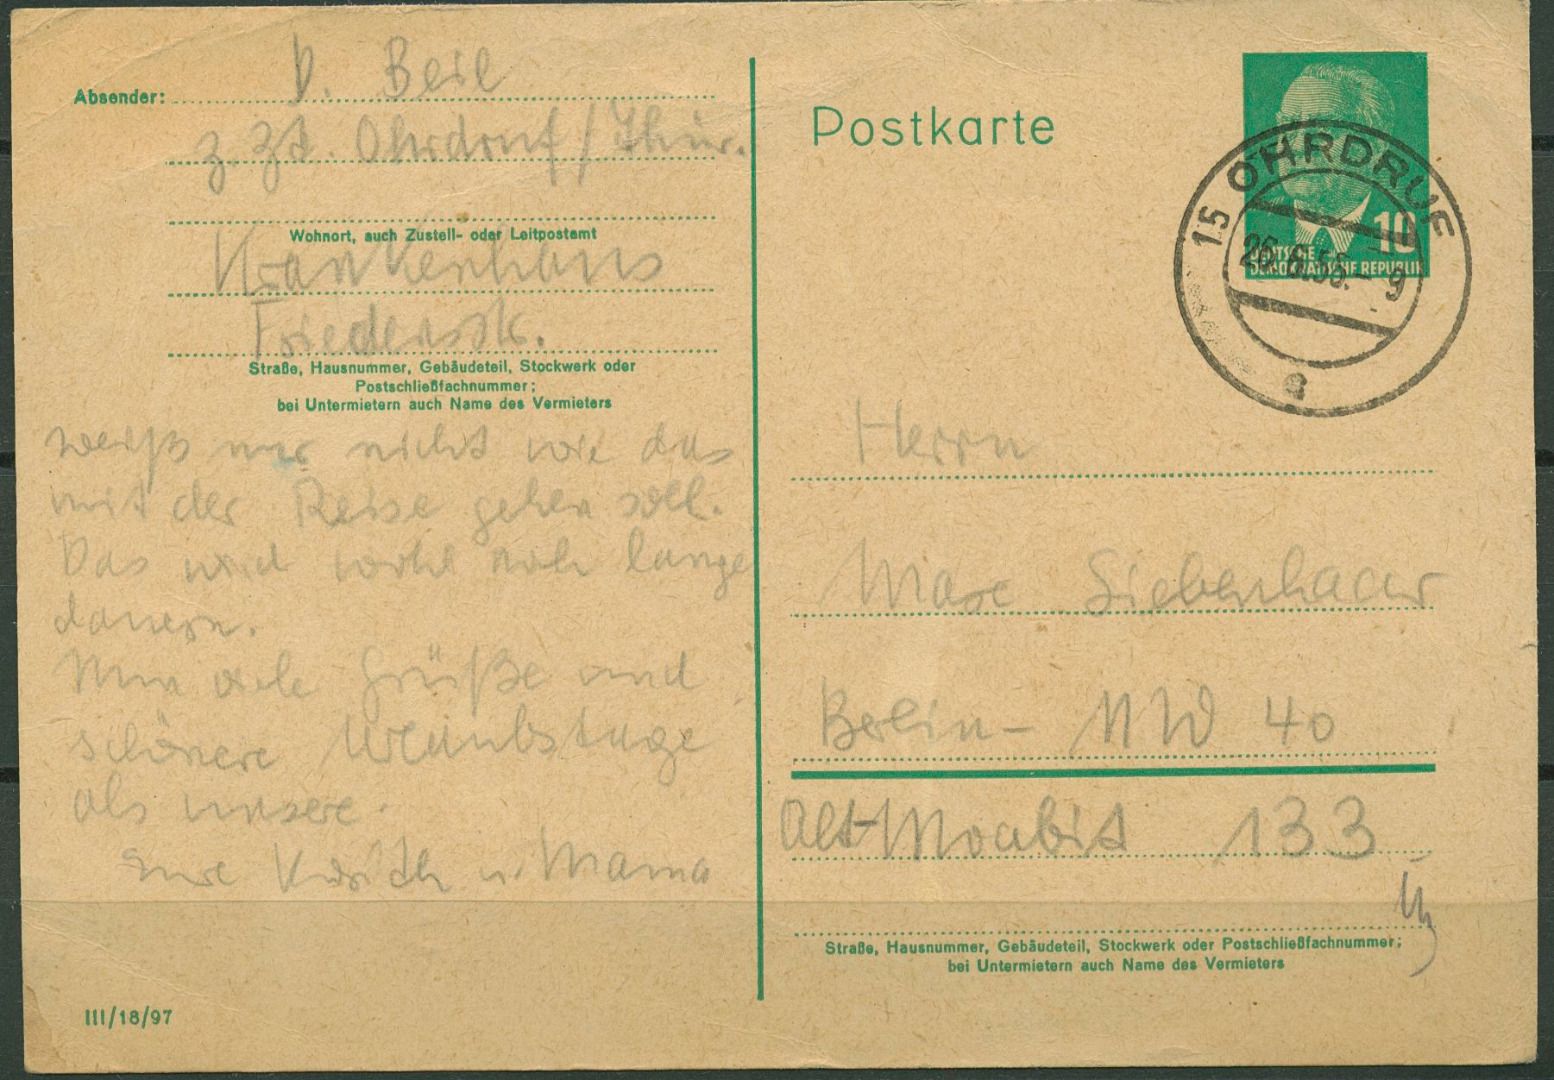 Absender: D. Beil
z. Zt. Ohrdruf / Thür.
Wohnort, auch Zustell- oder Leitpostamt
Krankenhaus
Friedensstr.
Straße, Hausnummer, Gebäudeteil, Stockwerk oder
Postschließfachnummer;
bei Untermietern auch Name des Vermieters
weiß nur nicht wie das
mit der Reise gehen soll.
Das wird wohl noch lange
dauern.
Nun viele Grüße und
schönere Urlaubstage
als unsere.
Eure u. Mama
III/18/97
Postkarte
10
DEUTSCHE
DEMOKRATISCHE REPUBLIK
15 OHRDRUF
26.6.56.-9
a
Herrn
Max Siebenhaar
Berlin - NW 40
Alt-Moabit 133
Straße, Hausnummer, Gebäudeteil, Stockwerk oder Postschließfachnummer;
bei Untermietern auch Name des Vermieters